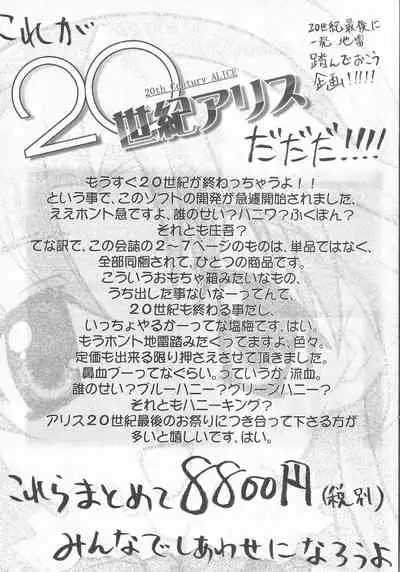 これが
20世紀最後に
一発 地雷
踏んでおこう
企画い!!!!
20th Century ALICE
20世紀アリス
だだだ!!!!
もうすぐ20世紀が終わっちゃうよ！！
という事で、このソフトの開発が急遽開始されました、
ええホント急ですよ、誰のせい？ハニワ？ふくぽん？
それとも庄吾？
てな訳で、この会誌の２～７ページのものは、単品ではなく、
全部同梱されて、ひとつの商品です。
こういうおもちゃ箱みたいなもの、
うち出した事ないなーってんて、
20世紀も終わる事だし、
いっちょやるかーってな塩梅です、はい。
もうホント地雷踏みたくってますよ、色々。
定価も出来る限り押さえさせて頂きました。
鼻血ブーってなぐらい。うていうか、流血。
誰のせい？ブルーハニー？グリーンハニー？
それともハニーキング？
アリス20世紀最後のお祭りにつき合って下さる方が
多いと嬉しいです、はい。
これらまとめて8800円(税別)
みんなでしあわせになろうよ